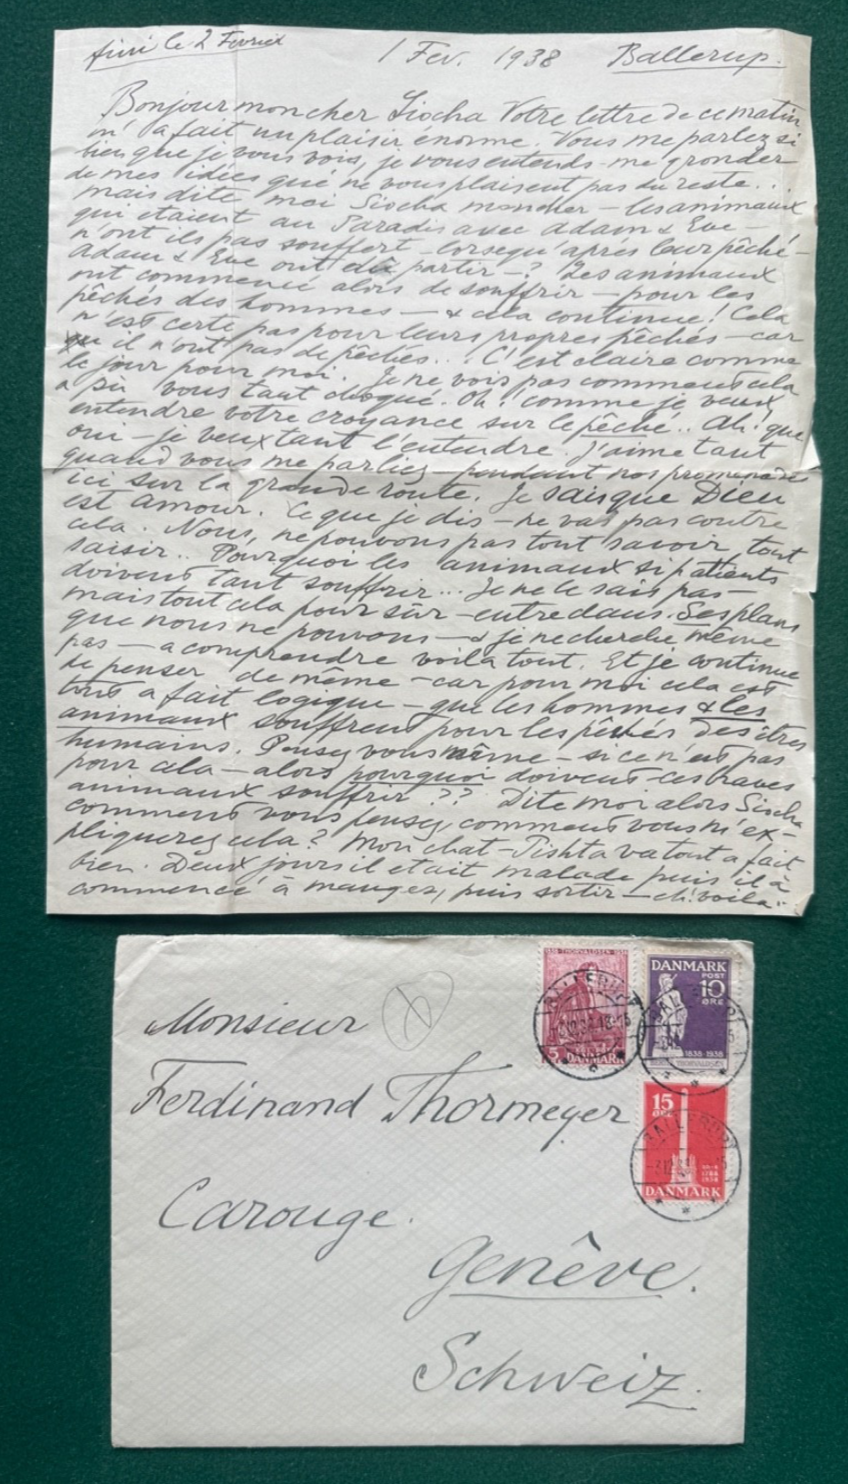 fini le 2 Fevrier
1 Fev. 1938 Ballerup.
Bonjour mon cher Siocha Votre lettre de ce matin
m'a fait un plaisir énorme. Vous me parlez si
bien que je vous vois, je vous entends me gronder
de mes idées qui ne vous plaisent pas du reste...
mais dite moi Siocha moncher – les animaux
qui etaient au Paradis avec Adam & Eve –
n'ont ils pas souffert – lorsequ'après leur pêché –
Adam & Eve ont dû partir –? Les animaux
ont commencé alors de souffrir – pour les
pêchés des hommes – & cela continue! Cela
n'est certe pas pour leurs propres pêchés – car
il n'ont pas de pêchés... C'est claire comme
le jour pour moi. Je ne vois pas comment cela
a pû vous tant choqué. Oh! comme je veux
entendre votre croyance sur le pêché.. Ah! que
oui – je veux tant l'entendre. J'aime tant
quand vous me parliez pendant nos promenade
ici sur la grande route. Je sais que Dieu
est amour. Ce que je dis – ne va pas contre
cela. Nous, ne pouvons pas tout savoir, tout
saisir.. Pourquoi les animaux si patients
doivent tant souffrir... Je ne le sais pas –
mais tout cela pour sûr – entre dans Ses plans
que nous ne pouvons – & je ne cherche même
pas – a comprendre voila tout. Et je continue
de penser de même – car pour moi cela est
tout a fait logique – que les hommes & les
animaux souffrent pour les pêchés des êtres
humains. Pensez vous même – si ce n'est pas
pour cela – alors pourquoi doivent ces braves
animaux souffrir?? Dite moi alors Siocha
comment vous pensez, comment vous m'ex-
pliquerez cela? Mon chat – Pishta va tout a fait
bien. Deux jours il etait malade puis il à
commencé à manger, puis sortir – voilà
Monsieur
Ferdinand Thormeyer
Carouge.
Genêve.
Schweiz.
1838 THORVALDSEN 1938
5
DANMARK
BALLERUP
DANMARK
POST
10
ØRE
1838-1938
THORVALDSEN
BALLERUP
15
ØRE
1788
1938
DANMARK
BALLERUP